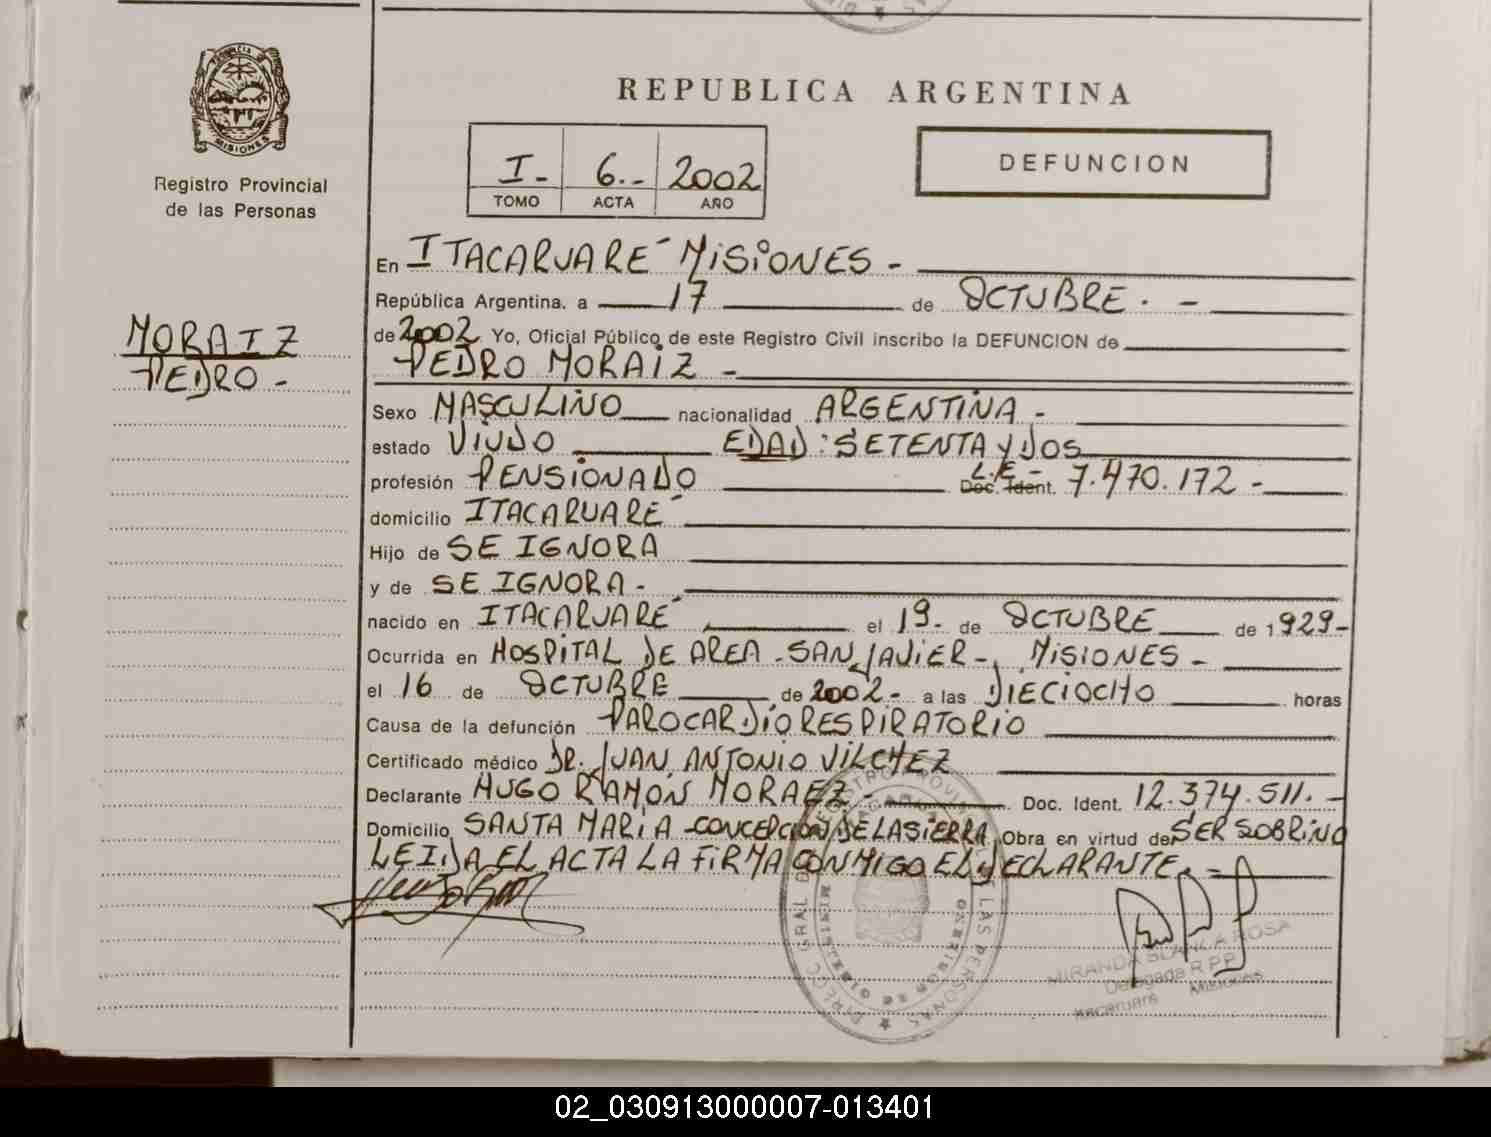 REPUBLICA ARGENTINA
PROVINCIA
MISIONES
Registro Provincial
de las Personas
I.- 6.- 2002
TOMO ACTA AÑO
DEFUNCION
MORAIZ
PEDRO -
En ITACARUARE´ MISIONES -
República Argentina. a 17 de OCTUBRE. -
de 2002 Yo, Oficial Público de este Registro Civil inscribo la DEFUNCION de
PEDRO MORAIZ -
Sexo MASCULINO nacionalidad ARGENTINA -
estado VIUDO EDAD: SETENTA Y DOS
profesión PENSIONADO L.E- Doc. Ident. 7.470.172 -
domicilio ITACARUARE´
Hijo de SE IGNORA
y de SE IGNORA -
nacido en ITACARUARE´ el 19- de OCTUBRE de 1929-
Ocurrida en HOSPITAL DE AREA - SAN JAVIER -, MISIONES -
el 16 de OCTUBRE de 2002- a las DIECIOCHO horas
Causa de la defunción PAROCARDIORESPIRATORIO
Certificado médico DR. JUAN ANTONIO VILCHEZ
Declarante HUGO RAMÓN MORAEZ - Doc. Ident. 12.374.511. -
Domicilio SANTA MARIA - CONCEPCION DE LA SIERRA Obra en virtud de SER SOBRINO
LEIDA EL ACTA LA FIRMA CONMIGO EL DECLARANTE. -
MIRANDA BLANCA ROSA
Delegada R.P.P.
Itacaruare Misiones
02_030913000007-013401